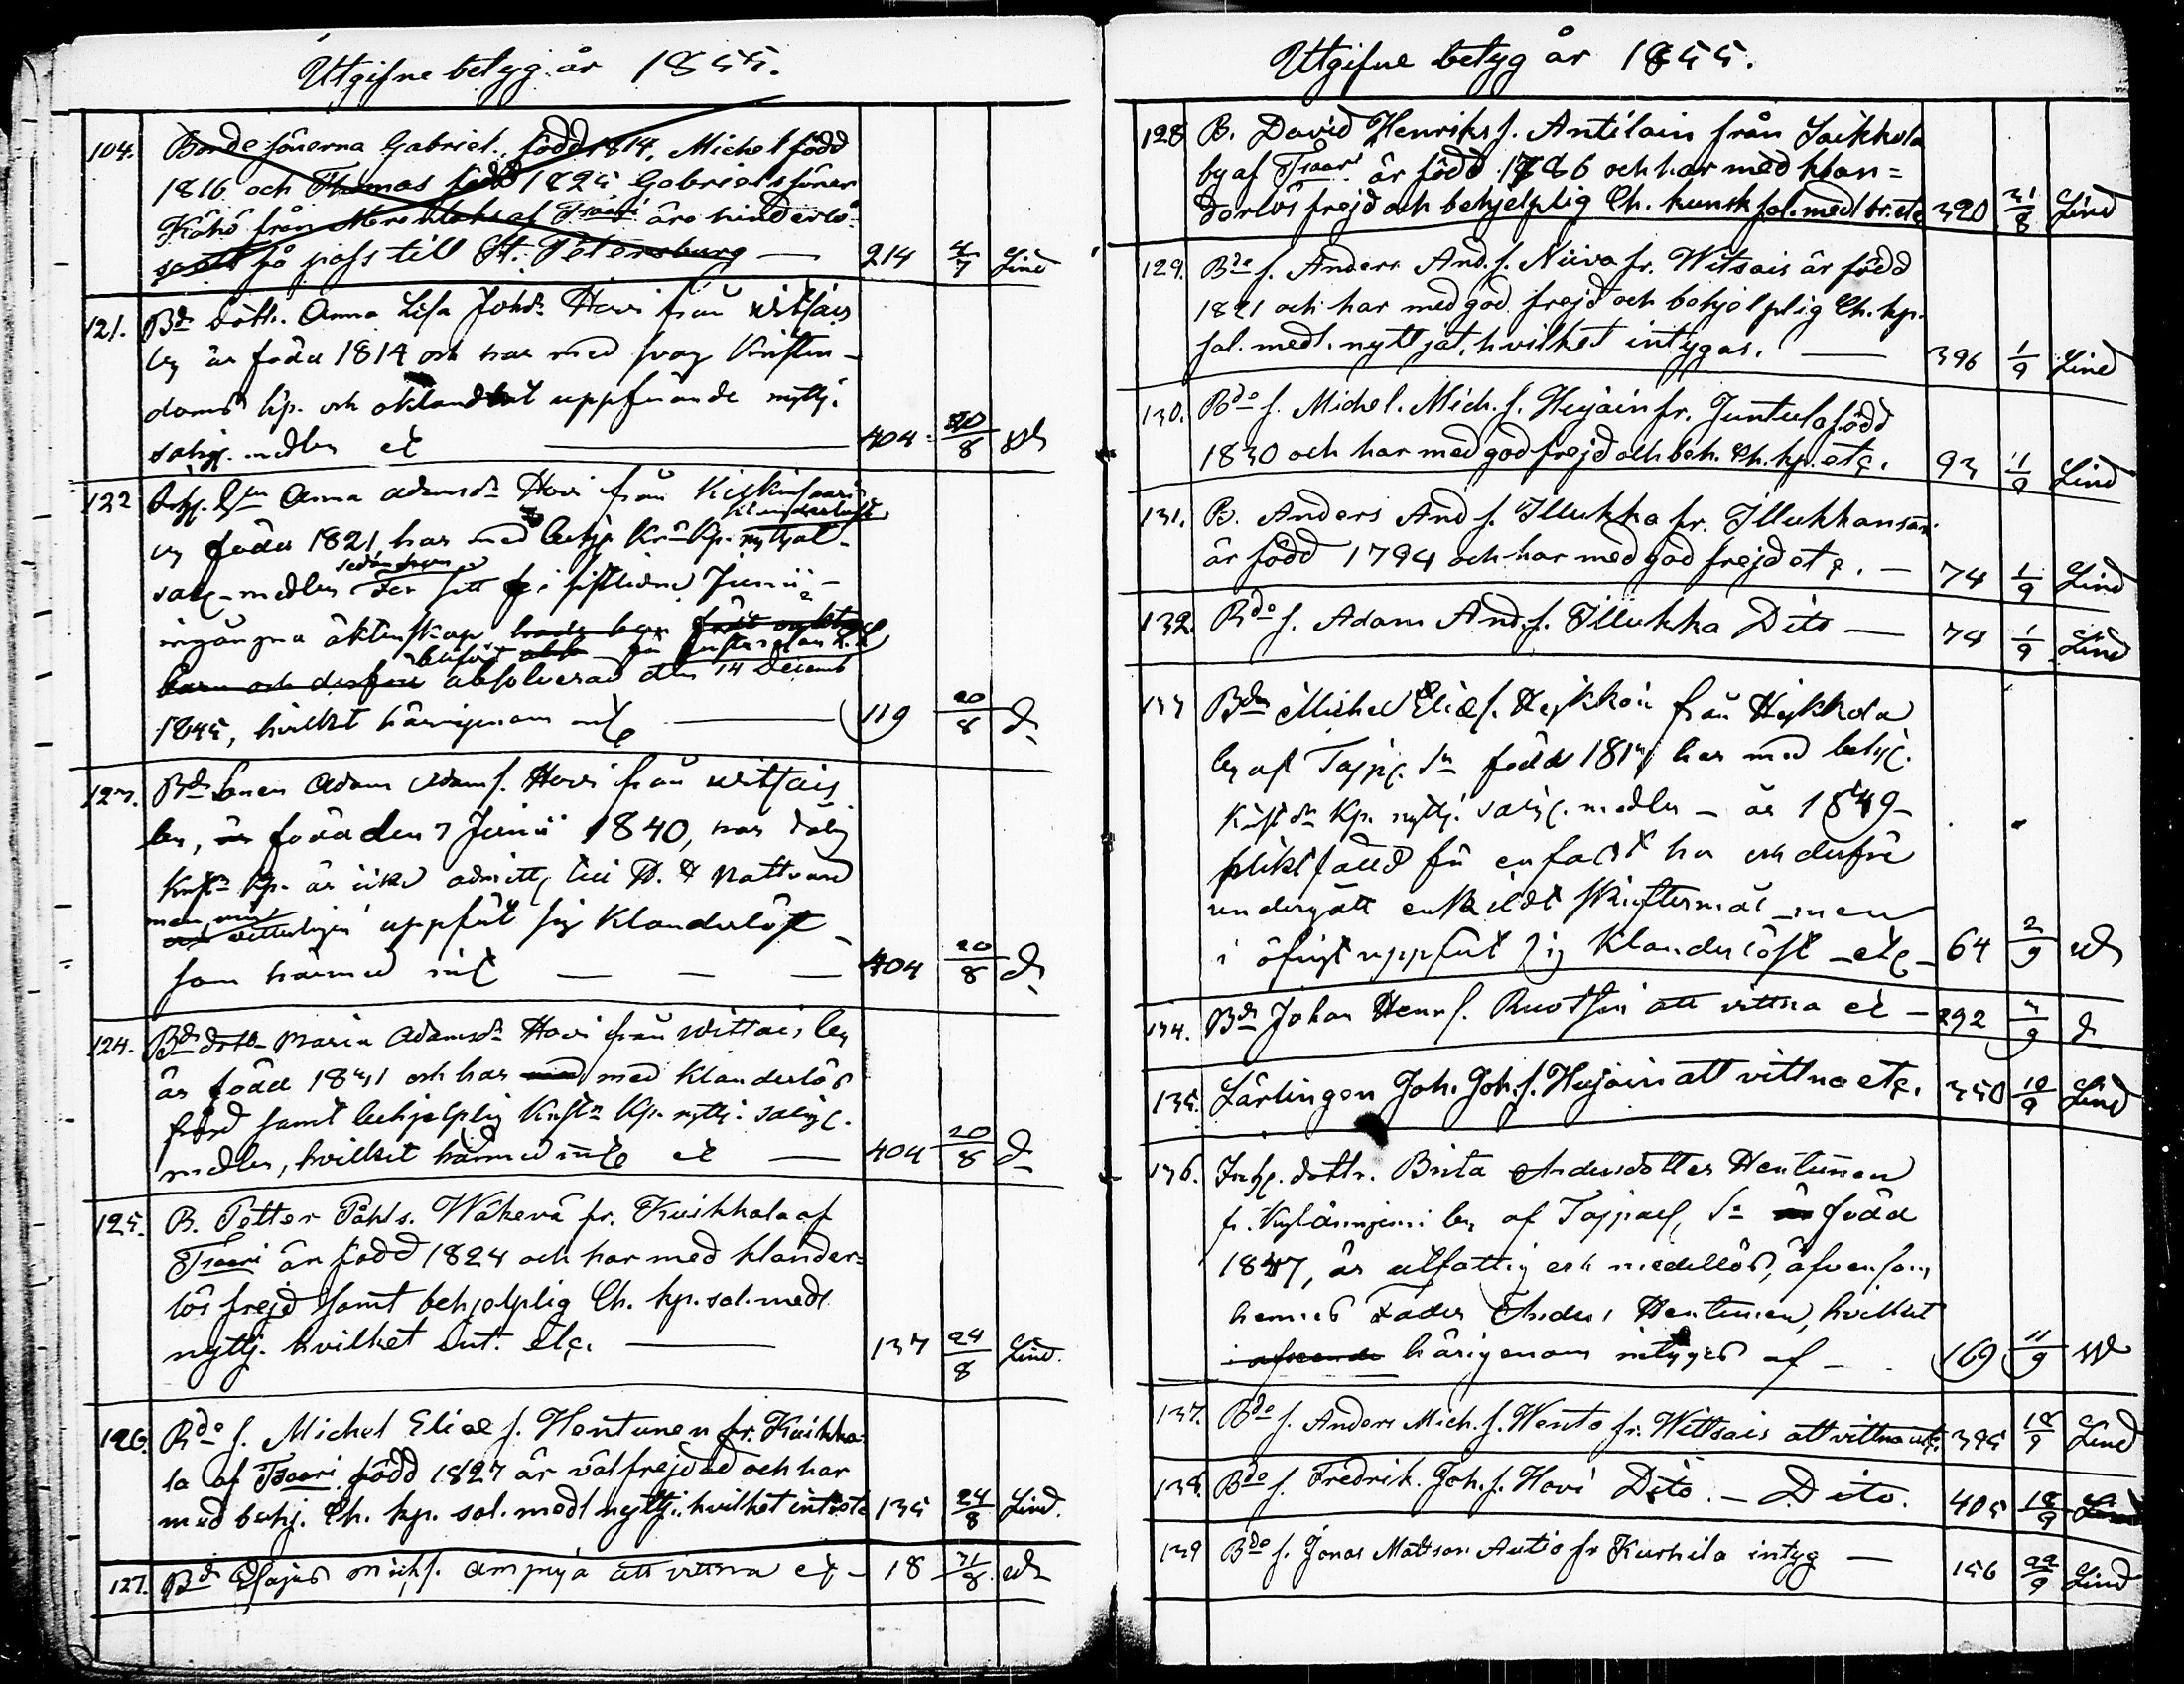 Utgifne betyg år 1855.
104. Bonde sönerna Gabriel, född 1814, Michel född
1816 och Thomas född 1825 Gabriels söner
Kähö från af Tsaari äro hinderlö-
se att få pass till St. Petersburg — 214 4/7 Lind
121. Bd dottr. Anna Lisa Johsdr Hovi från Witsais
by är född 1814 och har med svag Kristen-
doms kp. och oklandrat uppförande nyttj.
salig. medlen etc — 404 20/8
122 Inhys. Anna Adamsdr Hovi från Kilkinsaari
klanderlöst
by född 1821, har med behjp. Kr. Kp. nyttjat
sedan hon
salig-medlen för sitt i sistledne Junii
ingångna äktenskap, hade hon
blifvit
barn och derföre absolverad den 14 Decemb
1845, hvilket härigenom int. — 119 20/8 D
123. Bd Sonen Adam Adams s. Hovi från Witsais
by, är född den 7 Junii 1840, har dålig
Krist. kp. är icke admitt. till H. H. Nattvard
men
och uppfört sig klanderlöst
som härmed int — — — 404 20/8 D
124. Bd dottr Maria Adamsdr Hovi från Wittais by
är född 1831 och har med med klanderlös
frejd samt behjelplig Krist. Kp. nyttj. salig.
medlen, hvilket härmed int. etc — 404 20/8 D
125. B. Petter Påhls. Wäkevä fr. Kuikkala af
Tsaari är född 1824 och har med klander-
lös frejd samt behjelplig Ch. kp. sal. medl
nyttj. hvilket int. etc. — 137 24/8 Lind.
126. Bdo s. Michel Elias s. Hentunen fr. Kuikka-
la af Tsaari född 1827 är välfrejdad och har
med behj. Ch. kp. sal. medl nyttj. hvilket int etc 135 24/8 Lind.
127. Bd Esajas Mich s. Ampuja att vittna etc — 18 31/8
Utgifne betyg år 1855.
128 B. David Henriks s. Antilain från Saikkola
by af Tsaari är född 1786 och har med klan-
derlös frejd och behjelplig Ch. kunsk sal. medl br. etc 320 31/8 Lind
129. Bdo s. Anders And. s. Niiva fr. Witsais är född
1821 och har med god frejd och behjelplig Ch. kp.
sal. medl. nyttjat, hvilket intygas. — 396 1/9 Lind
130. Bdo s. Michel Mich. s. Heijain fr. Juntula född
1830 och har med god frejd och beh. Ch. kp. etc. 93 1/9 Lind
131. B. Anders And s. Illukka fr. Illukkansari
är född 1794 och har med god frejd etc. — 74 1/9 Lind
132. Bdo s. Adam And. s. Illukka Dito — 74 1/9 Lind
133 Bdn Michel Elias s. Heikkoin från Heikkola
by af Taips. Sn född 181 har med behjl.
Krist dr Kp. nyttj. salig. medlen — är 1849
pliktfälld för enfaldt hor och derföre
undergått enskildt skriftermål — men
i öfrigt uppfört sig klanderlöst — etc — 64 2/9
134. Bd Johan Henr s. Ruotsin att vittna etc — 292 3/9 D
135. Lärlingen Joh. Joh. s. Heijoin att vittna etc. 350 10/9 Lind
136. Inhys. dottr. Brita Andersdotter Hentunen
fr. by af Taipals, Sn är född
1847, är utfattig och medellös, äfvensom
hennes Fader Anders Hentunen, hvilket
i afseende härigenom intygas af — 169 11/9
137. Bdo s. Anders Mich. s. Wento fr. Wittsais att vittna etc. 395 18/9 Lind
138. Bdo s. Fredrik Joh. s. Hovi Dito. — Dito. 405 18/9 Lind
139 Bdo s. Jonas Mattson Autio fr Kurhila intyg — 156 22/9 Lind